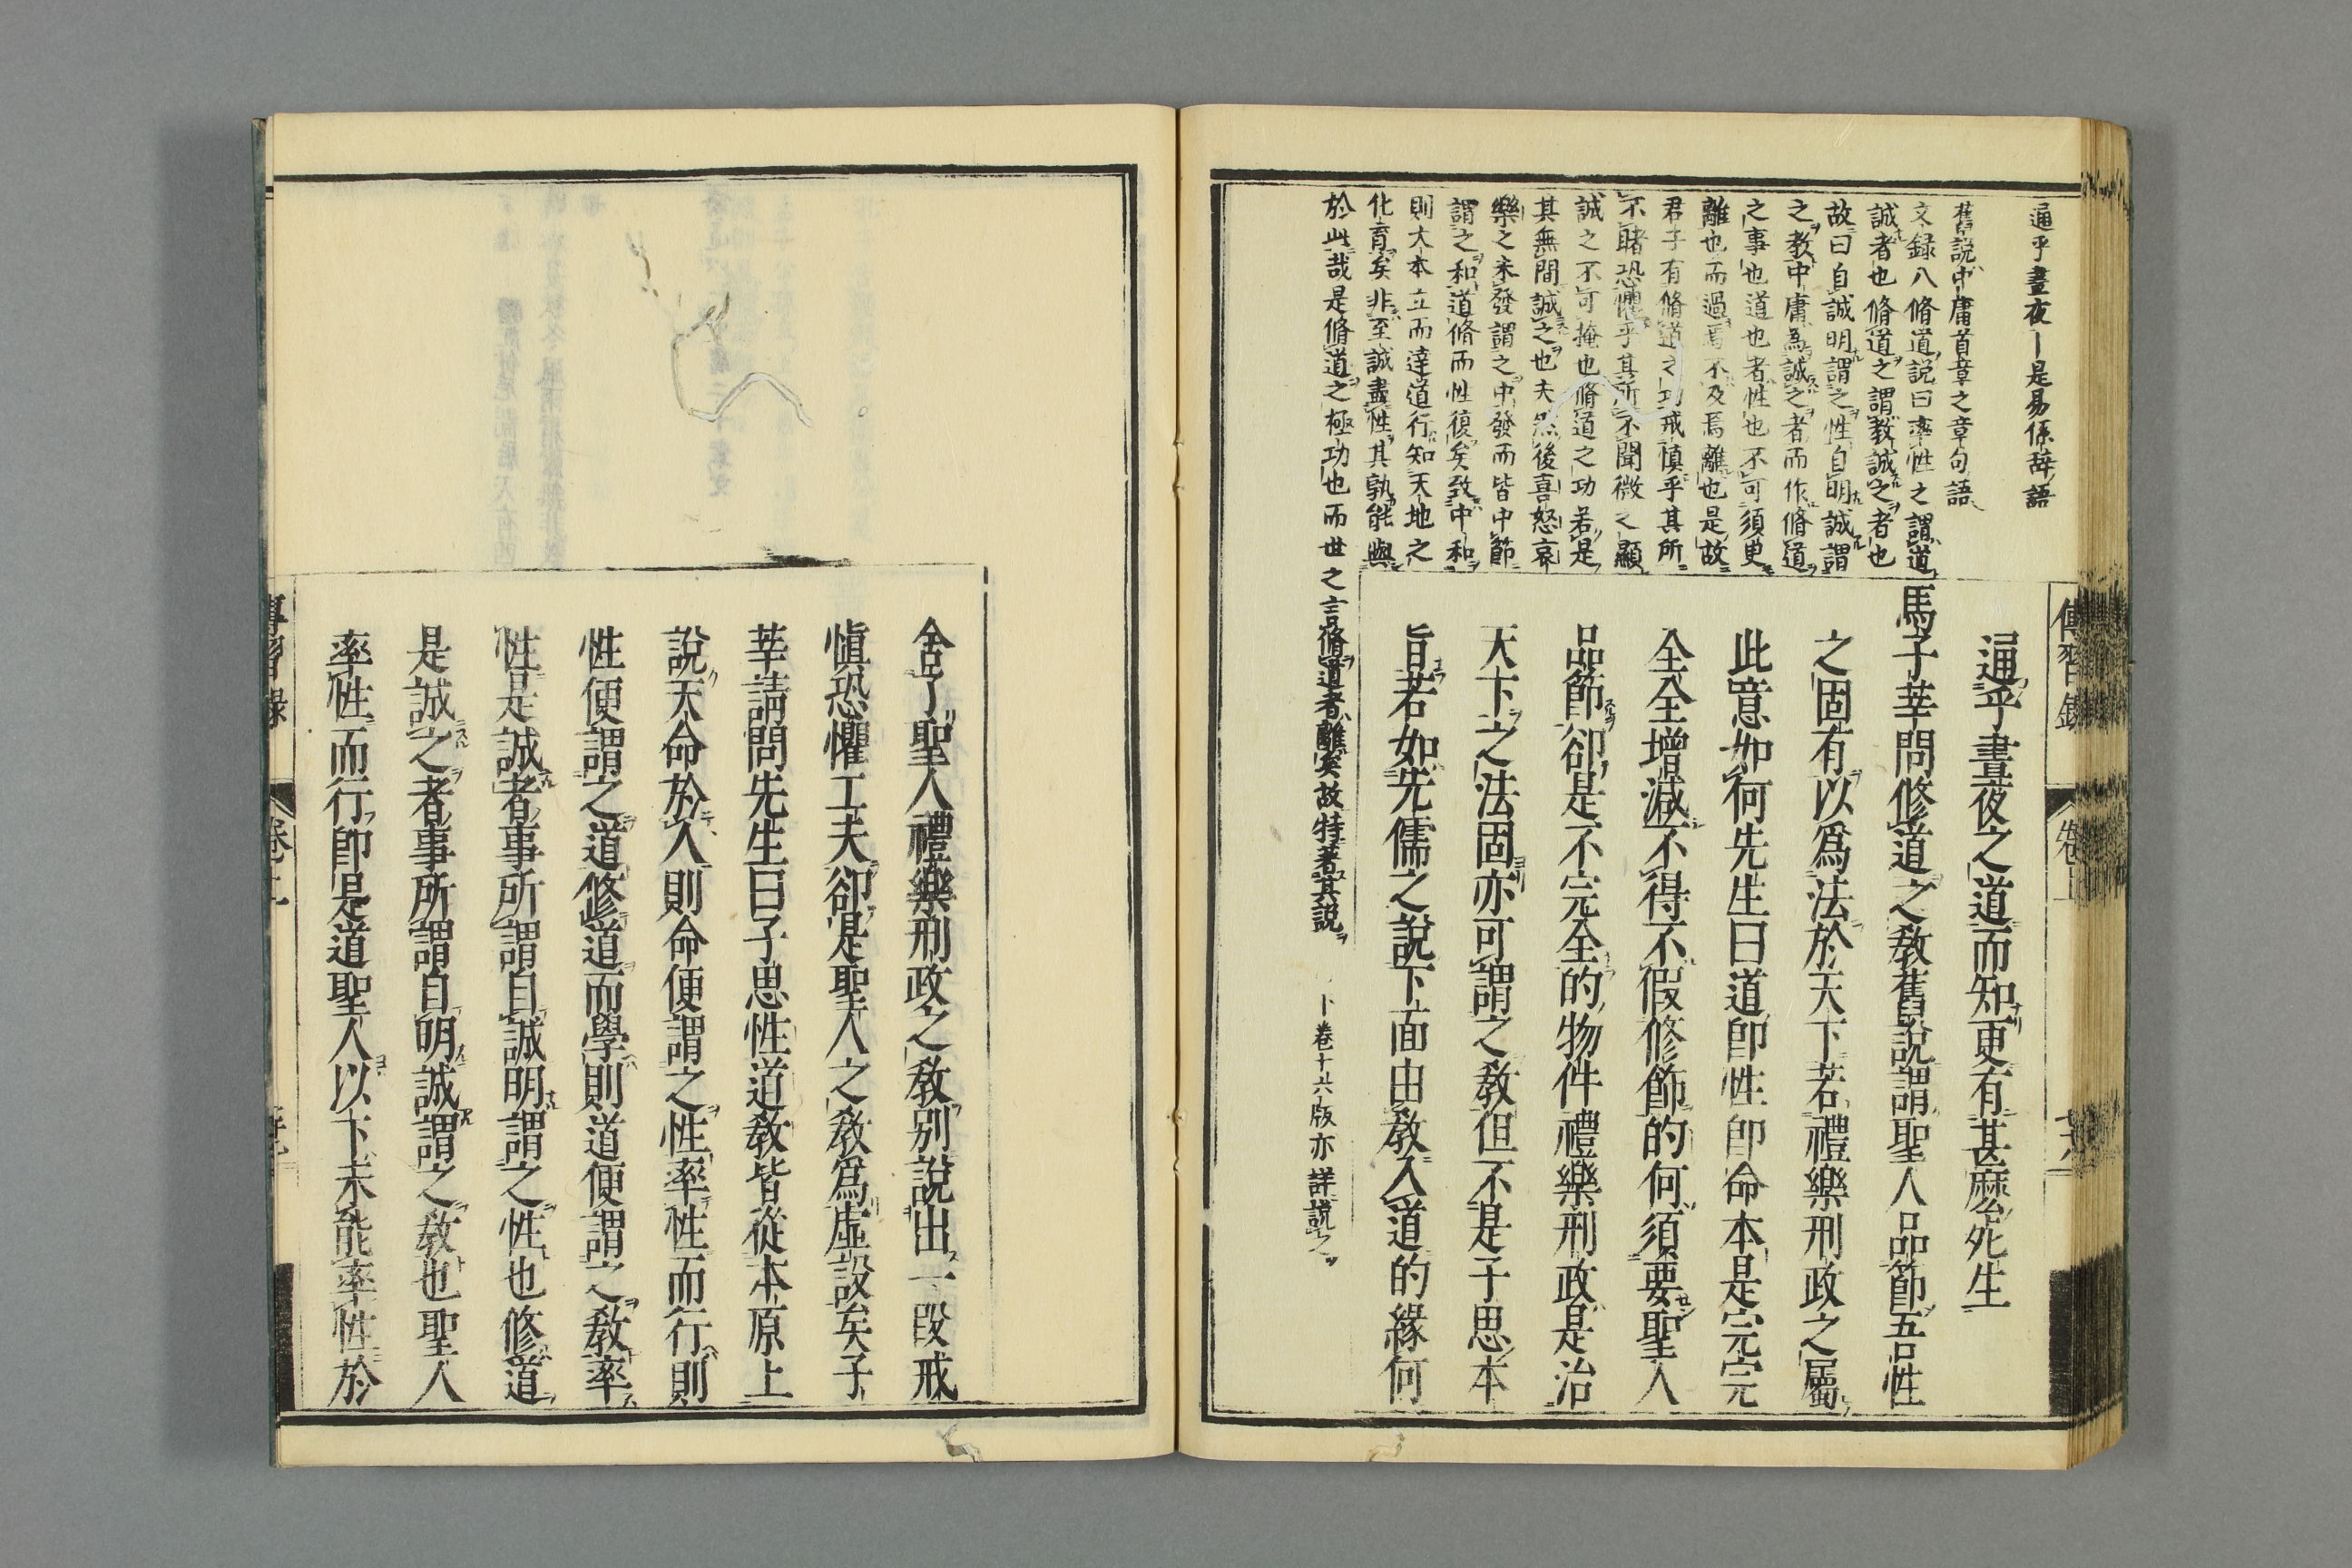 傳習錄
卷上
通乎晝夜｜是易係辞語
舊説中庸首章之章句語
文録八脩道説曰率性之謂道
誠者也脩道之謂教誠之者也
故曰自誠明謂之性自明誠謂
之教中庸為誠之者而作脩道
之事也道也者性也不可須臾
離也而過焉不及焉離也是故
君子有脩道之功戒慎乎其所
不睹恐懼乎其所不聞微之顯
誠之不可掩也脩道之功若是
其無間誠之也夫然後喜怒哀
樂之未發謂之中發而皆中節
謂之和道脩而性復矣致中和
則大本立而達道行知天地之
化育矣非至誠盡性其孰能與
於此哉是脩道之極功也而世之言脩道者離矣故特著其説
下卷十六版亦詳說之
通乎晝夜之道而知更有甚麼死生
馬子莘問修道之教舊說謂聖人品節吾性
之固有以爲法於天下若禮樂刑政之屬
此意如何先生曰道卽性卽命本是完完
全全增減不得不假修飾的何須要聖人
品節卻是不完全的物件禮樂刑政是治
天下之法固亦可謂之教但不是子思本
旨若如先儒之說下面由教入道的緣何
舍了聖人禮樂刑政之教別說出一段戒
愼恐懼工夫卻是聖人之教爲虛設矣子
莘請問先生曰子思性道教皆從本原上
說天命於人則命便謂之性率性而行則
性便謂之道修道而學則道便謂之教率
性是誠者事所謂自誠明謂之性也修道
是誠之者事所謂自明誠謂之教也聖人
率性而行卽是道聖人以下未能率性於
傳習錄
卷上